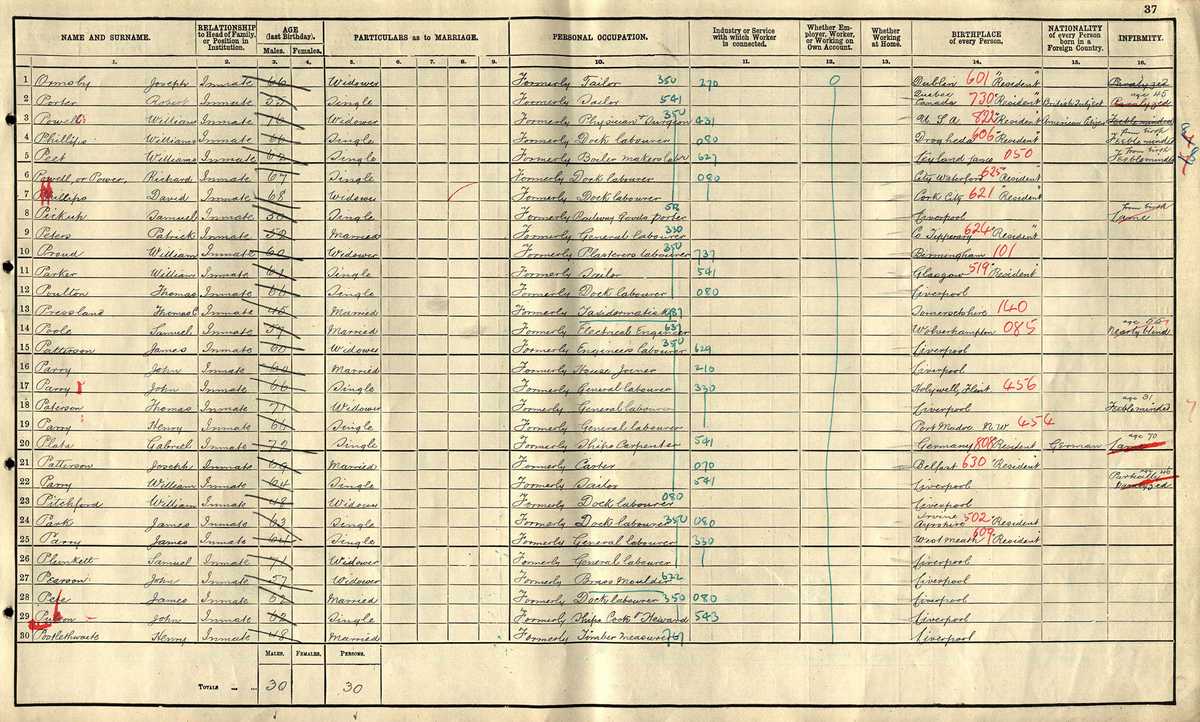 37
NAME AND SURNAME. RELATIONSHIP to Head of Family, or Position in Institution. AGE (last Birthday). Males. Females. PARTICULARS as to MARRIAGE. PERSONAL OCCUPATION. Industry or Service with which Worker is connected. Whether Employer, Worker, or Working on Own Account. Whether Working at Home. BIRTHPLACE of every Person. NATIONALITY of every Person born in a Foreign Country. INFIRMITY.
1. 2. 3. 4. 5. 6. 7. 8. 9. 10. 11. 12. 13. 14. 15. 16.
1 Ormsby Joseph Inmate 66 Widower Formerly Tailor 350 270 0 Dublin 601 "Resident" Paralyzed
2 Porter Robert Inmate Single Formerly Sailor 541 Quebec Canada 730 "Resident" British Subject age 45 Paralyzed
3 Powell William Inmate 76 Widower Formerly Physician & Surgeon 350 431 U.S.A. 822 "Resident" American Citizen Feebleminded
4 Phillips William Inmate Single Formerly Dock labourer 080 Drogheda 606 "Resident" from birth Feebleminded
5 Peet William Inmate Single Formerly Boiler makers labr 627 Leyland Lancs 050 from birth Feebleminded
6 Powell, or Power, Richard Inmate 67 Single Formerly Dock labourer 080 City Waterford 625 "Resident"
7 Phillips David Inmate 68 Widower Formerly Dock labourer Cork City 621 "Resident"
8 Pickup Samuel Inmate 50 Single Formerly Railway Goods Porter Liverpool from birth Lame
9 Peters Patrick Inmate 59 Married Formerly General labourer 330 Co Tipperary 624 "Resident"
10 Proud William Inmate 60 Widower Formerly Plasterers labourer 350 737 Birmingham 101
11 Parker William Inmate 61 Single Formerly Sailor 541 Glasgow 519 "Resident"
12 Poulton Thomas Inmate 66 Single Formerly Dock labourer 080 Liverpool
13 Pressland Thomas Inmate 40 Married Formerly Taxidermatist Somersetshire 140
14 Poole Samuel Inmate 57 Married Formerly Electrical Engineer 637 Wolverhampton 085 Nearly blind
15 Patterson James Inmate 60 Widower Formerly Engineers labourer 350 629 Liverpool
16 Parry John Inmate 60 Married Formerly House Joiner 210 Liverpool
17 Parry John Inmate 66 Single Formerly General labourer 330 Holywell, Flint 456
18 Paterson Thomas Inmate 71 Widower Formerly General labourer Liverpool age 31 Feebleminded
19 Parry Henry Inmate 66 Single Formerly General labourer Port Madoc N.W 454
20 Plata Gabriel Inmate 72 Single Formerly Ships Carpenter 541 Germany 808 Resident German age 70 Lame
21 Patterson Joseph Inmate 69 Married Formerly Carter 070 Belfast 630 "Resident"
22 Parry William Inmate 64 Single Formerly Sailor 541 Liverpool age 46 Partially Paralyzed
23 Pitchford William Inmate 48 Widower Formerly Dock labourer 080 Liverpool
24 Park James Inmate 63 Single Formerly Dock labourer 350 080 Irvine Ayrshire 502 Resident
25 Parry James Inmate 64 Single Formerly General labourer 330 West Meath 609 "Resident
26 Plunkett Samuel Inmate 71 Widower Formerly General labourer Liverpool
27 Pearson John Inmate 57 Widower Formerly Brass Moulder 622 Liverpool
28 Pete James Inmate 52 Married Formerly Dock labourer 350 080 Liverpool
29 John Inmate 62 Single Formerly Ships Cook & Steward 543 Liverpool
30 Postlethwaite Henry Inmate 48 Married Formerly Timber Measurer 767 Liverpool
MALES. FEMALES. PERSONS.
TOTALS ... ... 30 30